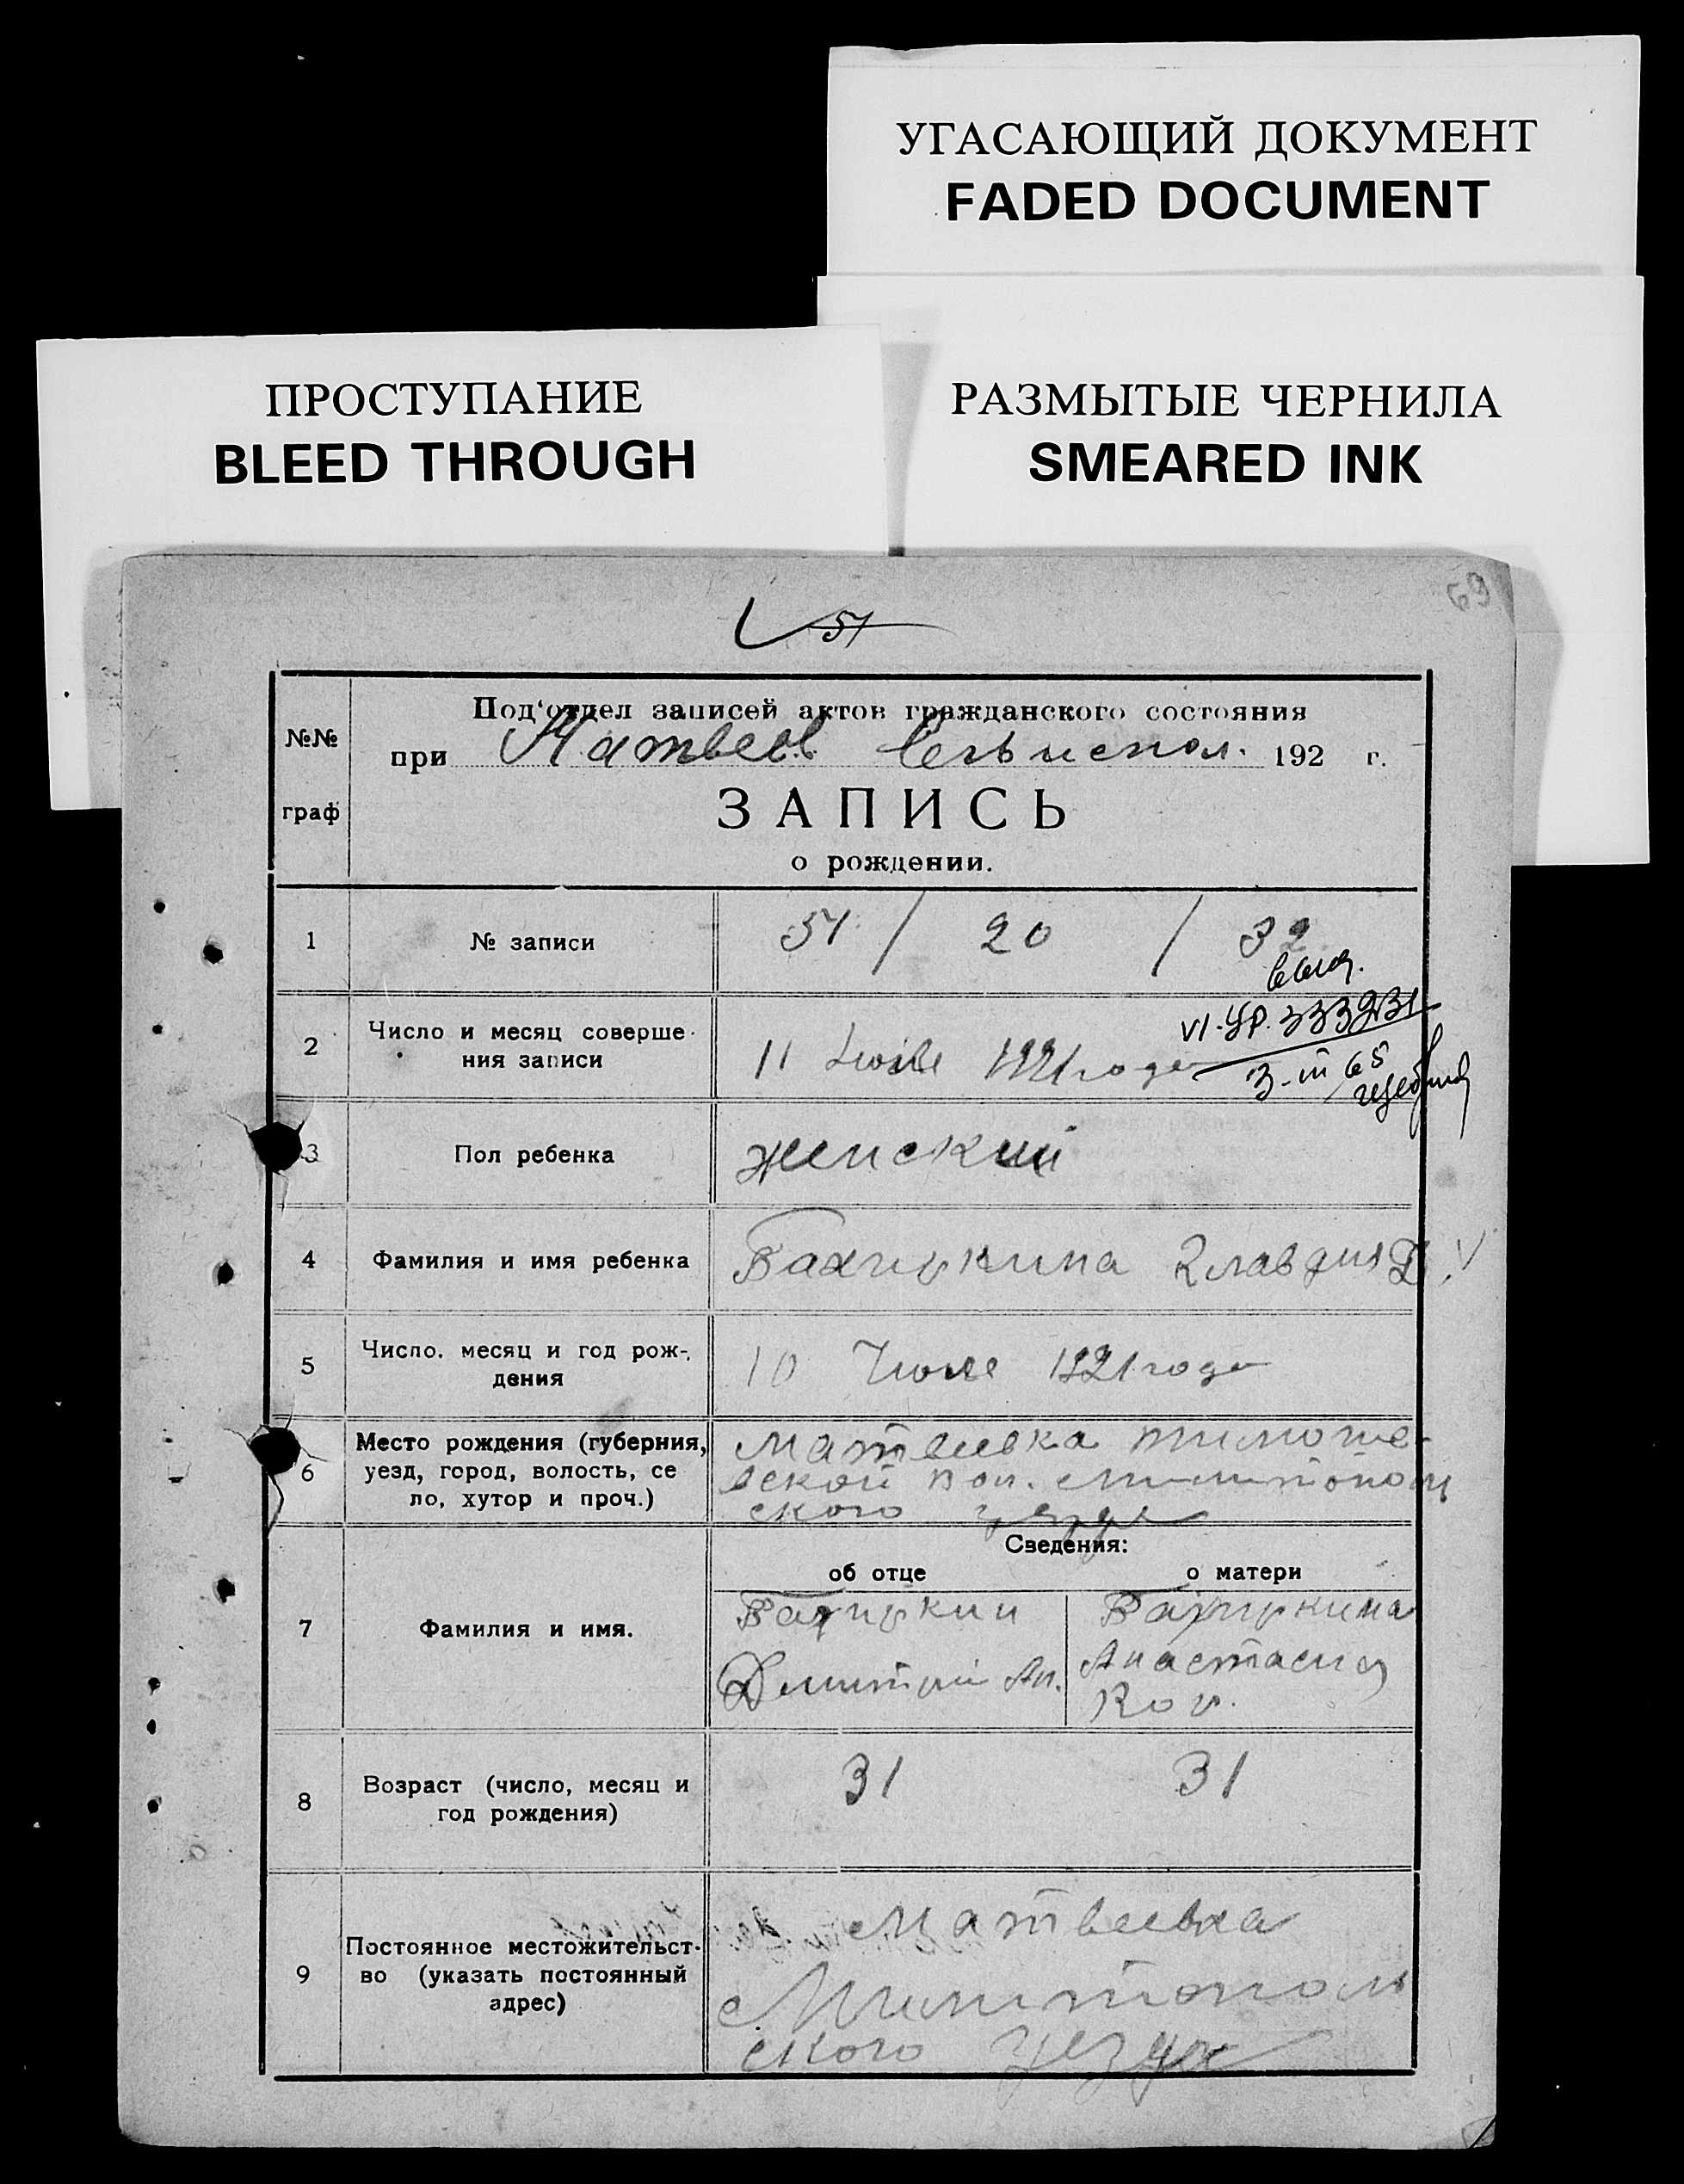 УГАСАЮЩИЙ ДОКУМЕНТ
FADED DOCUMENT
ПРОСТУПАНИЕ
BLEED THROUGH
РАЗМЫТЫЕ ЧЕРНИЛА
SMEARED INK
69
51
Под‘отдел записей актов гражданского состояния
№№
граф
при Матвеев. Сельиспол. 192 г.
ЗАПИСЬ
о рождении.
1 № записи 51 / 20 / 32
выд.
2 Число и месяц соверше-
ния записи
11 Июля 1921 года
VI-УР. 333931
3-III 65
3 Пол ребенка женский
4 Фамилия и имя ребенка Бахчиркина Клавдия Д. V
5 Число. месяц и год рож-
дения
10 Июля 1921 года
6 Место рождения (губерния,
уезд, город, волость, се
ло, хутор и проч.)
Матвеевка тимоше-
вской вол. Милитополь
ского уезда
Сведения:
об отце о матери
7 Фамилия и имя.
Дмитрий Ан.
Анастасия
Кор.
8 Возраст (число, месяц и
год рождения)
31 31
9 Постоянное местожительст-
во (указать постоянный
адрес)
Матвеевка
Милитополь
ского уезда